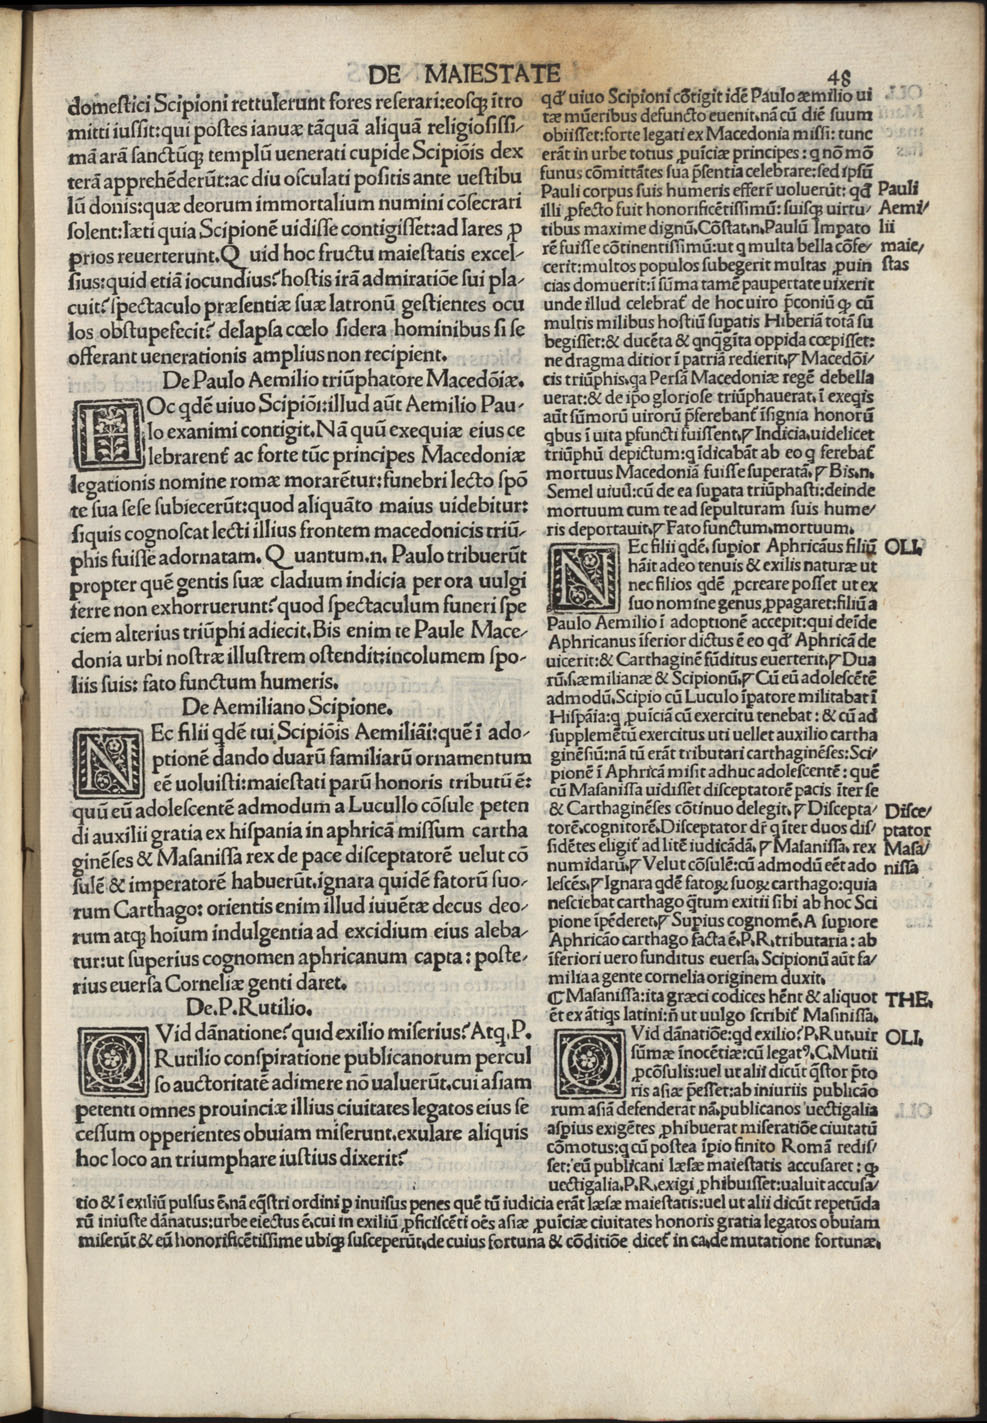 DE MAIESTATE
48
domestici Scipioni rettulerunt fores reserari:eosq; ĩtro
mitti iussit:qui postes ianuæ tãquã aliquã religiosissi-
mã arã sanctũq; templũ uenerati cupide Scipiõis dex
terã apprehẽderũt:ac diu osculati positis ante uestibu
lũ donis:quæ deorum immortalium numini cõsecrari
solent:læti quia Scipionẽ uidisse contigisset:ad lares ꝓ
prios reuerterunt.Q uid hoc fructu maiestatis excel-
sius:quid etiã iocundius?hostis irã admiratiõe sui pla-
cuit?spectaculo præsentiæ suæ latronũ gestientes ocu
los obstupefecit? delapsa cœlo sidera hominibus si se
offerant uenerationis amplius non recipient.
De Paulo Aemilio triũphatore Macedõiæ.
HOc qdẽ uiuo Scipiõi:illud aũt Aemilio Pau-
lo exanimi contigit.Nã quũ exequiæ eius ce
lebrarent̃ ac forte tũc principes Macedoniæ
legationis nomine romæ morarẽtur:funebri lecto spõ
te sua sese subiecerũt:quod aliquãto maius uidebitur:
siquis cognoscat lecti illius frontem macedonicis triũ-
phis fuisse adornatam. Q uantum.n. Paulo tribuerũt
propter quẽ gentis suæ cladium indicia per ora uulgi
ferre non exhorruerunt?quod spectaculum funeri spe
ciem alterius triũphi adiecit.Bis enim te Paule Mace-
donia urbi nostræ illustrem ostendit:incolumem spo-
liis suis: fato functum humeris.
De Aemiliano Scipione.
NEc filii qdẽ tui Scipiõis Aemiliãi:quẽ ĩ ado-
ptionẽ dando duarũ familiarũ ornamentum
eẽ uoluisti:maiestati parũ honoris tributũ ẽ:
quũ eũ adolescentẽ admodum a Lucullo cõsule peten
di auxilii gratia ex hispania in aphricã missum cartha
ginẽses & Masanissa rex de pace disceptatorẽ uelut cõ
sulẽ & imperatorẽ habuerũt.ignara quidẽ fatorũ suo-
rum Carthago: orientis enim illud iuuẽtæ decus deo-
rum atq; hoium indulgentia ad excidium eius aleba-
tur:ut superius cognomen aphricanum capta: poste-
rius euersa Corneliæ genti daret.
De.P.Rutilio.
QVid dãnatione?quid exilio miserius? Atq.P.
Rutilio conspiratione publicanorum percul
so auctoritatẽ adimere nõ ualuerũt.cui asiam
petenti omnes prouinciæ illius ciuitates legatos eius se
cessum opperientes obuiam miserunt.exulare aliquis
hoc loco an triumphare iustius dixerit?
qđ uiuo Scipioni cõtigit idẽ Paulo æmilio ui
tæ mũeribus defuncto euenit.nã cũ diẽ suum
obiisset:forte legati ex Macedonia missi: tunc
erãt in urbe totius ꝓuĩciæ principes: q nõ mõ
funus cõmittãtes sua p̃sentia celebrare:sed ipsũ
Pauli corpus suis humeris efferr̃ uoluerũt: qđ
illi ꝓfecto fuit honorificẽtissimũ: suisq; uirtu-
tibus maxime dignũ.Cõstat.n.Paulũ Impato
rẽ fuisse cõtinentissimũ:ut q multa bella cõfe-
cerit:multos populos subegerit multas ꝓuin
cias domuerit:ĩ sũma tamẽ paupertate uixerit
unde illud celebrat̃ de hoc uiro p̃coniũ q; cũ
multis milibus hostiũ supatis Hiberiã totã su
begisset:& ducẽta & qnq̃gĩta oppida cœpisset:
ne dragma ditior ĩ patriã redierit.⁋ Macedõi-
cis triũphis.qa Persã Macedoniæ regẽ debella
uerat:& de ipo gloriose triũphauerat.ĩ exeqis
aũt sũmorũ uirorũ p̃ferebant̃ ĩsignia honorũ
qbus ĩ uita pfuncti fuissent.⁋ Indicia.uidelicet
triũphũ depictum:q ĩdicabãt ab eo q ferebat̃
mortuus Macedoniã fuisse superatã.⁋ Bis.n.
Semel uiuũ:cũ de ea supata triũphasti:deinde
mortuum cum te ad sepulturam suis hume-
ris deportauit.⁋ Fato functum.mortuum.
NEc filii qdẽ.supior Aphricãus filiũ
hãit adeo tenuis & exilis naturæ ut
nec filios qdẽ ꝓcreare posset ut ex
suo nomine genus ꝓpagaret:filiũ a
Paulo Aemilio ĩ adoptionẽ accepit:qui deĩde
Aphricanus ĩferior dictus ẽ eo qđ Aphricã de
uicerit:& Carthaginẽ fũditus euerterit.⁋ Dua
rũ.s.æmilianæ & Scipionũ.⁋ Cũ eũ adolescẽtẽ
admodũ.Scipio cũ Luculo ĩpatore militabat ĩ
Hispãia:q ꝓuĩciã cũ exercitu tenebat: & cũ ad
supplemẽtũ exercitus uti uellet auxilio cartha
ginẽsiũ:nã tũ erãt tributari carthaginẽses:Sci-
pionẽ ĩ Aphricã misit adhuc adolescentẽ: quẽ
cũ Masanissa uidisset disceptatorẽ pacis ĩter se
& Carthaginẽses cõtinuo delegit.⁋ Discepta-
torẽ.cognitorẽ.Disceptator dr̃ q ĩter duos dis-
sidẽtes eligit̃ ad litẽ iudicãdã.⁋ Masanissa.rex
numidarũ.⁋ Velut cõsulẽ:cũ admodũ eẽt ado
lescẽs.⁋ Ignara qdẽ fatoꝝ suoꝝ carthago:quia
nesciebat carthago q̃tum exitii sibi ab hoc Sci
pione ĩpẽderet.⁋ Supius cognomẽ.A supiore
Aphricão carthago facta ẽ.P.R.tributaria: ab
ĩferiori uero funditus euersa.Scipionũ aũt fa-
milia a gente cornelia originem duxit.
¶ Masanissa:ita græci codices hẽnt & aliquot
ẽt ex ãtiqs latini:ñ ut uulgo scribit̃ Masinissã.
QVid dãnatiõe:qd exilio?P.Rut.uir
sũmæ ĩnocẽtiæ:cũ legatꝰ.C.Mutii
ꝓcõsulis:uel ut alii dicũt q̃stor p̃to
ris asiæ p̃esset:ab iniuriis publicão
rum asiã defenderat nã.publicanos uectigalia
aspius exigẽtes ꝓhibuerat miseratiõe ciuitatũ
cõmotus:q cũ postea ĩpio finito Romã redis-
set: eũ publicani læsæ maiestatis accusaret: q;
uectigalia.P.R.exigi ꝓhibuisset:ualuit accusa-
tio & ĩ exiliũ pulsus ẽ.nã eq̃stri ordini p̱ inuisus penes quẽ tũ iudicia erãt læsæ maiestatis:uel ut alii dicũt repetũda
rũ iniuste dãnatus:urbe eiectus ẽ.cui in exiliũ ꝓficiscẽti oẽs asiæ ꝓuĩciæ ciuitates honoris gratia legatos obuiam
miserũt & eũ honorificẽtissime ubiq; susceperũt.de cuius fortuna & cõditiõe dicet̃ in ca.de mutatione fortunæ.
Pauli
Aemi-
lii
maie-
stas
OLI.
Disce-
ptator
Masa-
nissa
THE.
OLI.